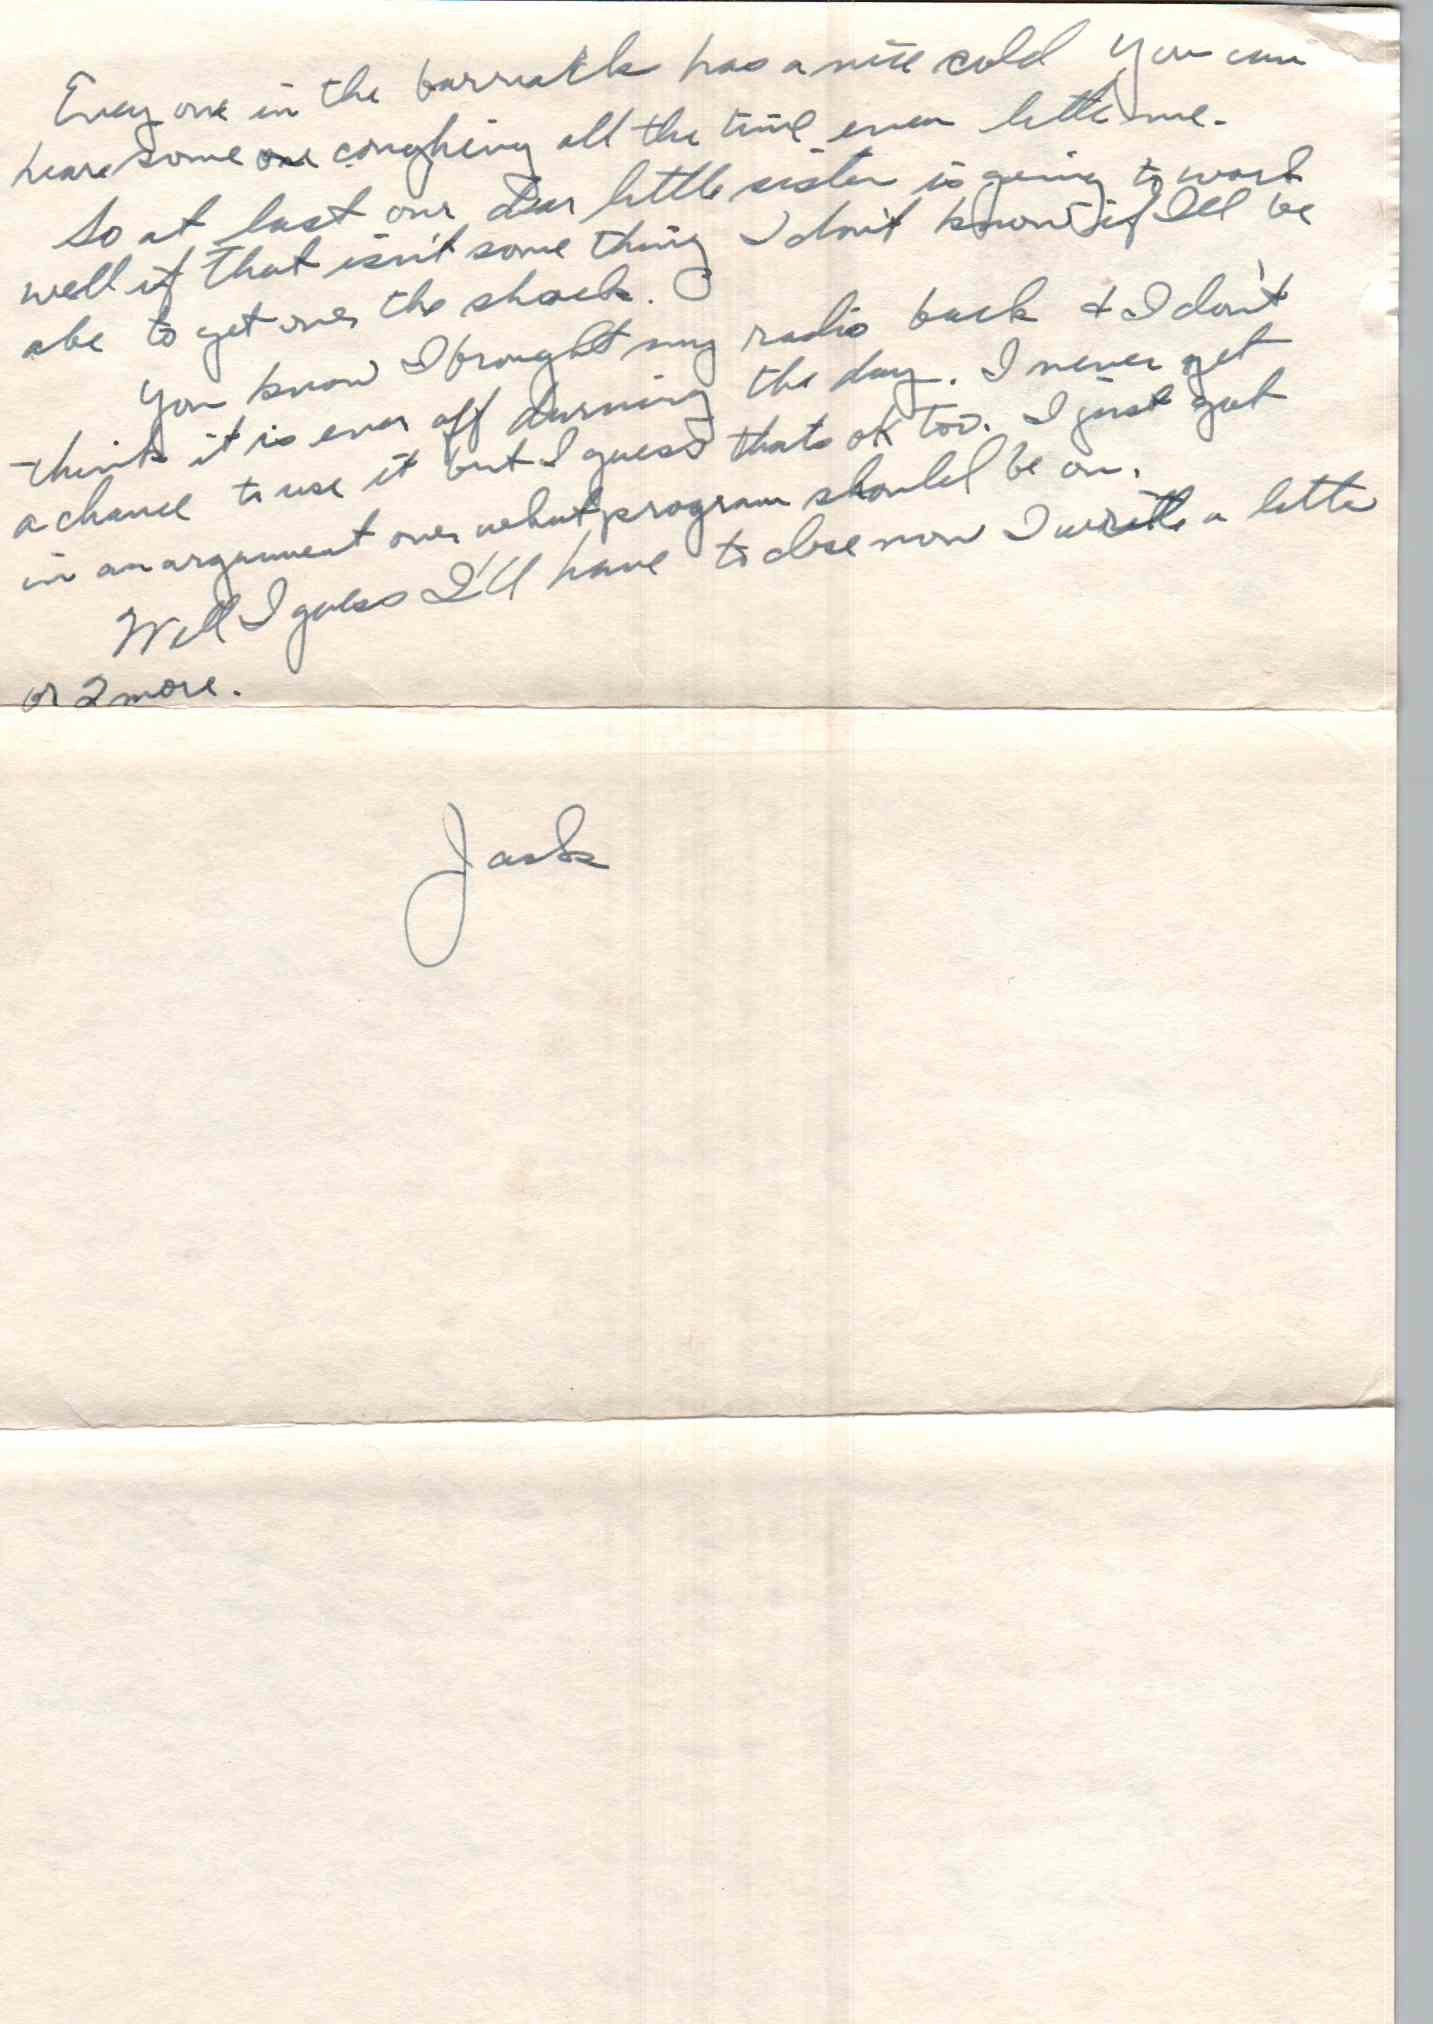 Every one in the barrack has a nice cold you can
hear some one coughing all the time even little me.
So at last our dear little sister is going to work
well if that isn't some thing I don't know if I'll be
abe to get over the shock.
You know I brought my radio back & I don't
think it is ever off durning the day. I never get
a chance to use it but I guess thats ok too. I just got
in an argument over what program should be on.
Well I guess I'll have to close now I write a lette
or 2 more.
Jack